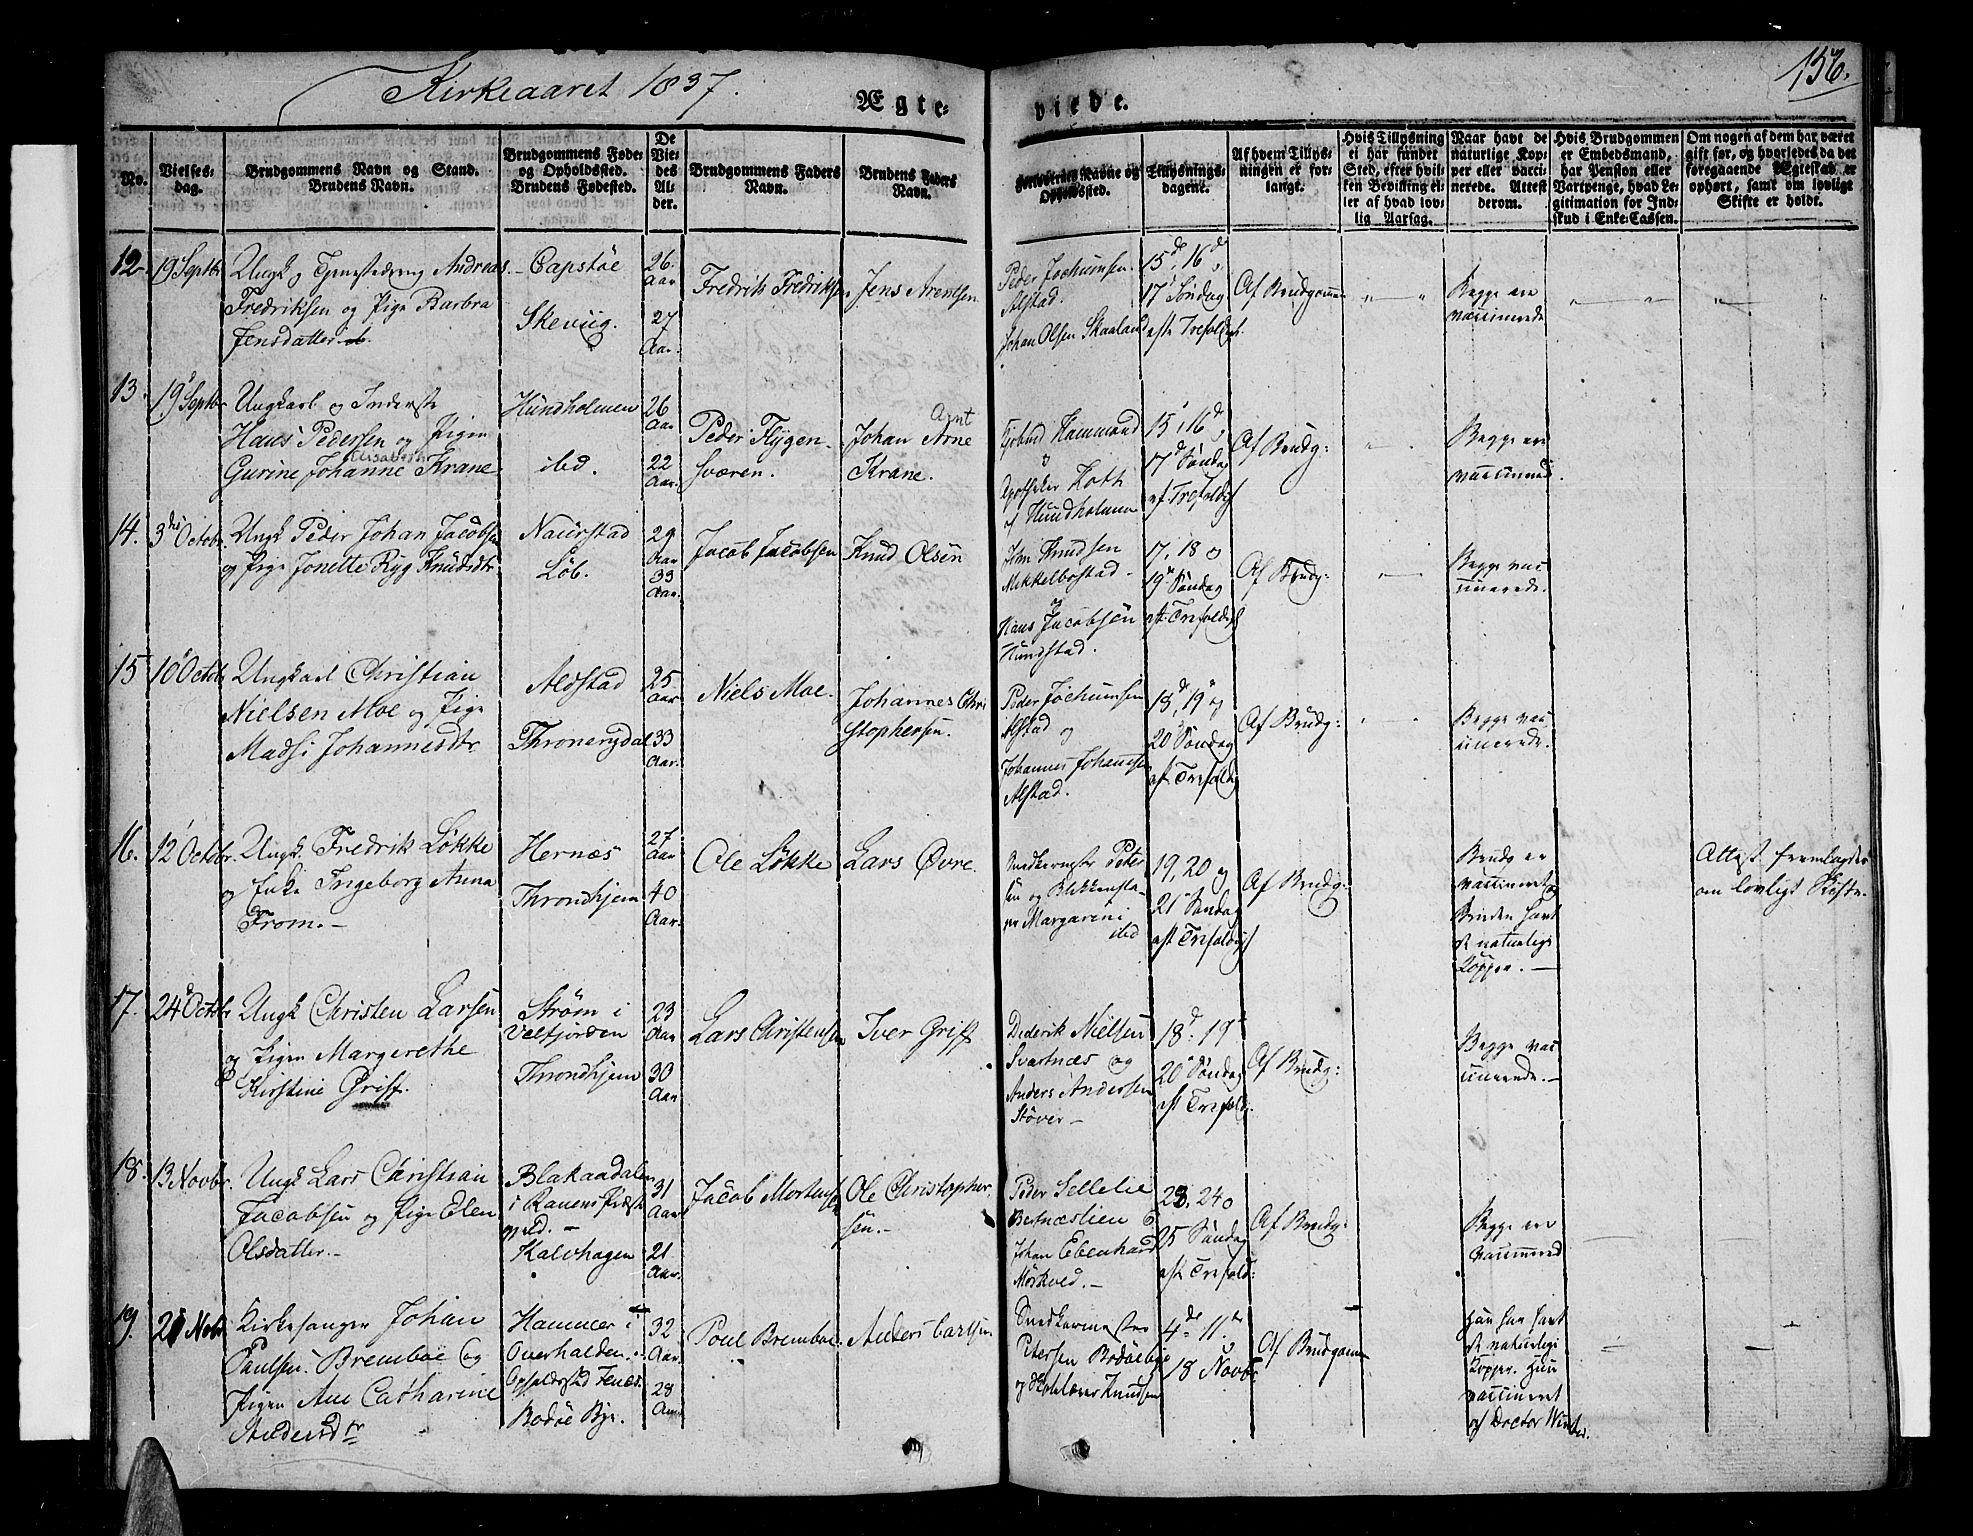 Kirkeaaret 1837.
Ægte-
viede.
156.
No.
Vielses-
dag.
Brudgommens Navn og Stand.
Brudens Navn.
Brudgommens Føde-
og Opholdssted.
Brudens Fødested.
De
Vie-
des
Al-
der.
Brudgommens Faders
Navn.
Brudens Faders
Navn.
Forloverens Navne og
Opholdssted.
Tillysnings-
dagene.
Af hvem Tillys-
ningen er for-
langt.
Hvis Tillysning
ei har fundet
Sted, efter hvil-
ken Bevilling el-
ler af hvad lov-
lig Aarsag.
Naar have de
naturlige Kop-
per eller vacci-
nerede. Attest
derom.
Hvis Brudgommen
er Embedsmand,
har Pension eller
Vartpenge, hvad Le-
gitimation for Ind-
skud i Enke-Cassen.
Om nogen af dem har været
gift før, og hvorledes da det
foregaaende Ægteskab er
ophørt, samt om lovligt
Skifte er holdt.
12.
19 Septbr
Ungk og Tjenestedreng Andreas
Fredriksen og Pige Barbra
Jensdatter
Capstøe
Skevug.
26
Aar
27
Aar.
Fredrik Fredriksen
Jens Arentsen
Peder Jochumsen
Alstad.
Johan Olsen Skaaland
15d, 16d,
17d Søndag
eft Trefoldigh.
Af Brudgommen
Begge ere
vaccinerede
13.
19d Septbr
Ungkarl og Inderste
Hans Pedersen og Pigen
Elisabeth
Gurine Johanne Krane
Hundholmen
ibd.
26
Aar
22
Aar.
Peder Flygen-
sværen.
Agnt
Johan Arne
Krane.
Hammond
og
Apotheker Koth
af Hundholmen
15d, 16d,
17d Søndag
ef. Trefoldigh
Af Brudg:
Begge ere
vaccinered.
14.
3die Octobr.
Ungk Peder Johan Jacobsen
og Pige Jonette Ryg Knudsdtr
Naurstad
Løb.
29
Aar
33
Aar.
Jacob Jacobsen
Knud Olsen
Knudsen
Mikkelbostad
og
Hans Jacobsen
Hundstad.
17, 18 og
19de Søndag
eft. Trefoldigh
Af Brudg:
Begge vac-
cinerede.
15
10d Octobr
Ungkarl Christian
Nielsen Moe og Pige
Madsi Johannesdtr
Aldstad
Thronengdal
25
Aar
33
Aar.
Niels Moe.
Johannes Chri
stophersen.
Peder Jochumsen
Alstad og
Johannes Johannsen
Alstad.
18d, 19d og
20d Søndag
eft Trefoldigh
Af Brudg:
Begge vac-
cinerede.
16.
12 Octobr.
Ungk. Fredrik Løkke
og Enke Ingeborg Anna
From.
Hernæs
Throndhjem
27
Aar
40
Aar.
Ole Løkke
Lars Øvre.
Snedkermester Peter
sen og Blikkensla-
ger Margarini
ibd
19, 20 og
21de Søndag
eft Trefoldigh
Af Brudg:
Brudg er
vaccineret og
Bruden havt
de naturlige
Kopper.
Attest fremlagdes
om lovligt Skifte.
17.
24d Octobr
Ungk Christen Larsen
og Pigen Margerethe
Kirstine Griff.
Strøm i
Velfjorden
Throndhjem
23
Aar
30
Aar
Lars Christensen
Iver Griff
Diderik Nielsen
Svartnæs og
Anders Andersen
Støver
18d. 19d
20de Søndag
eft Trefoldigh.
Af Brudg:
Begge vac-
cinerede.
18.
13 Novbr.
Ungk Lars Christian
Jacobsen og Pige Elen
Olsdatter.
Blakaadalen
i Ranens Præste
gjeld.
Kalvhagen
31
Aar
21
Aar.
Jacob Mortensen
Ole Christopher-
sen.
Peder Sellelie
Bertnæslien &
Johan Ebenhard
Mørkved.
23, 24 o
25 Søndag
eft Trefold:
Af Brudg:
Begge ere
vaccinered
19.
21 Nobr
Kirkesanger Johan
Paulsen Bremboe og
Pigen Ane Catharine
Andersdtr
Hammer i
Overhalden.
Opholdssted Fenes.
Bodøe Bye.
32
Aar.
28
Aar
Poul Bremboe
Anders Carlsen
Snedkermester
Petersen Bodøebye
og Knudsen
4de 11te
18 Novbr
Af Brudgommen
Han har havt
de naturlige
Kopper. Hun
vaccineret
af Doctor Winther.